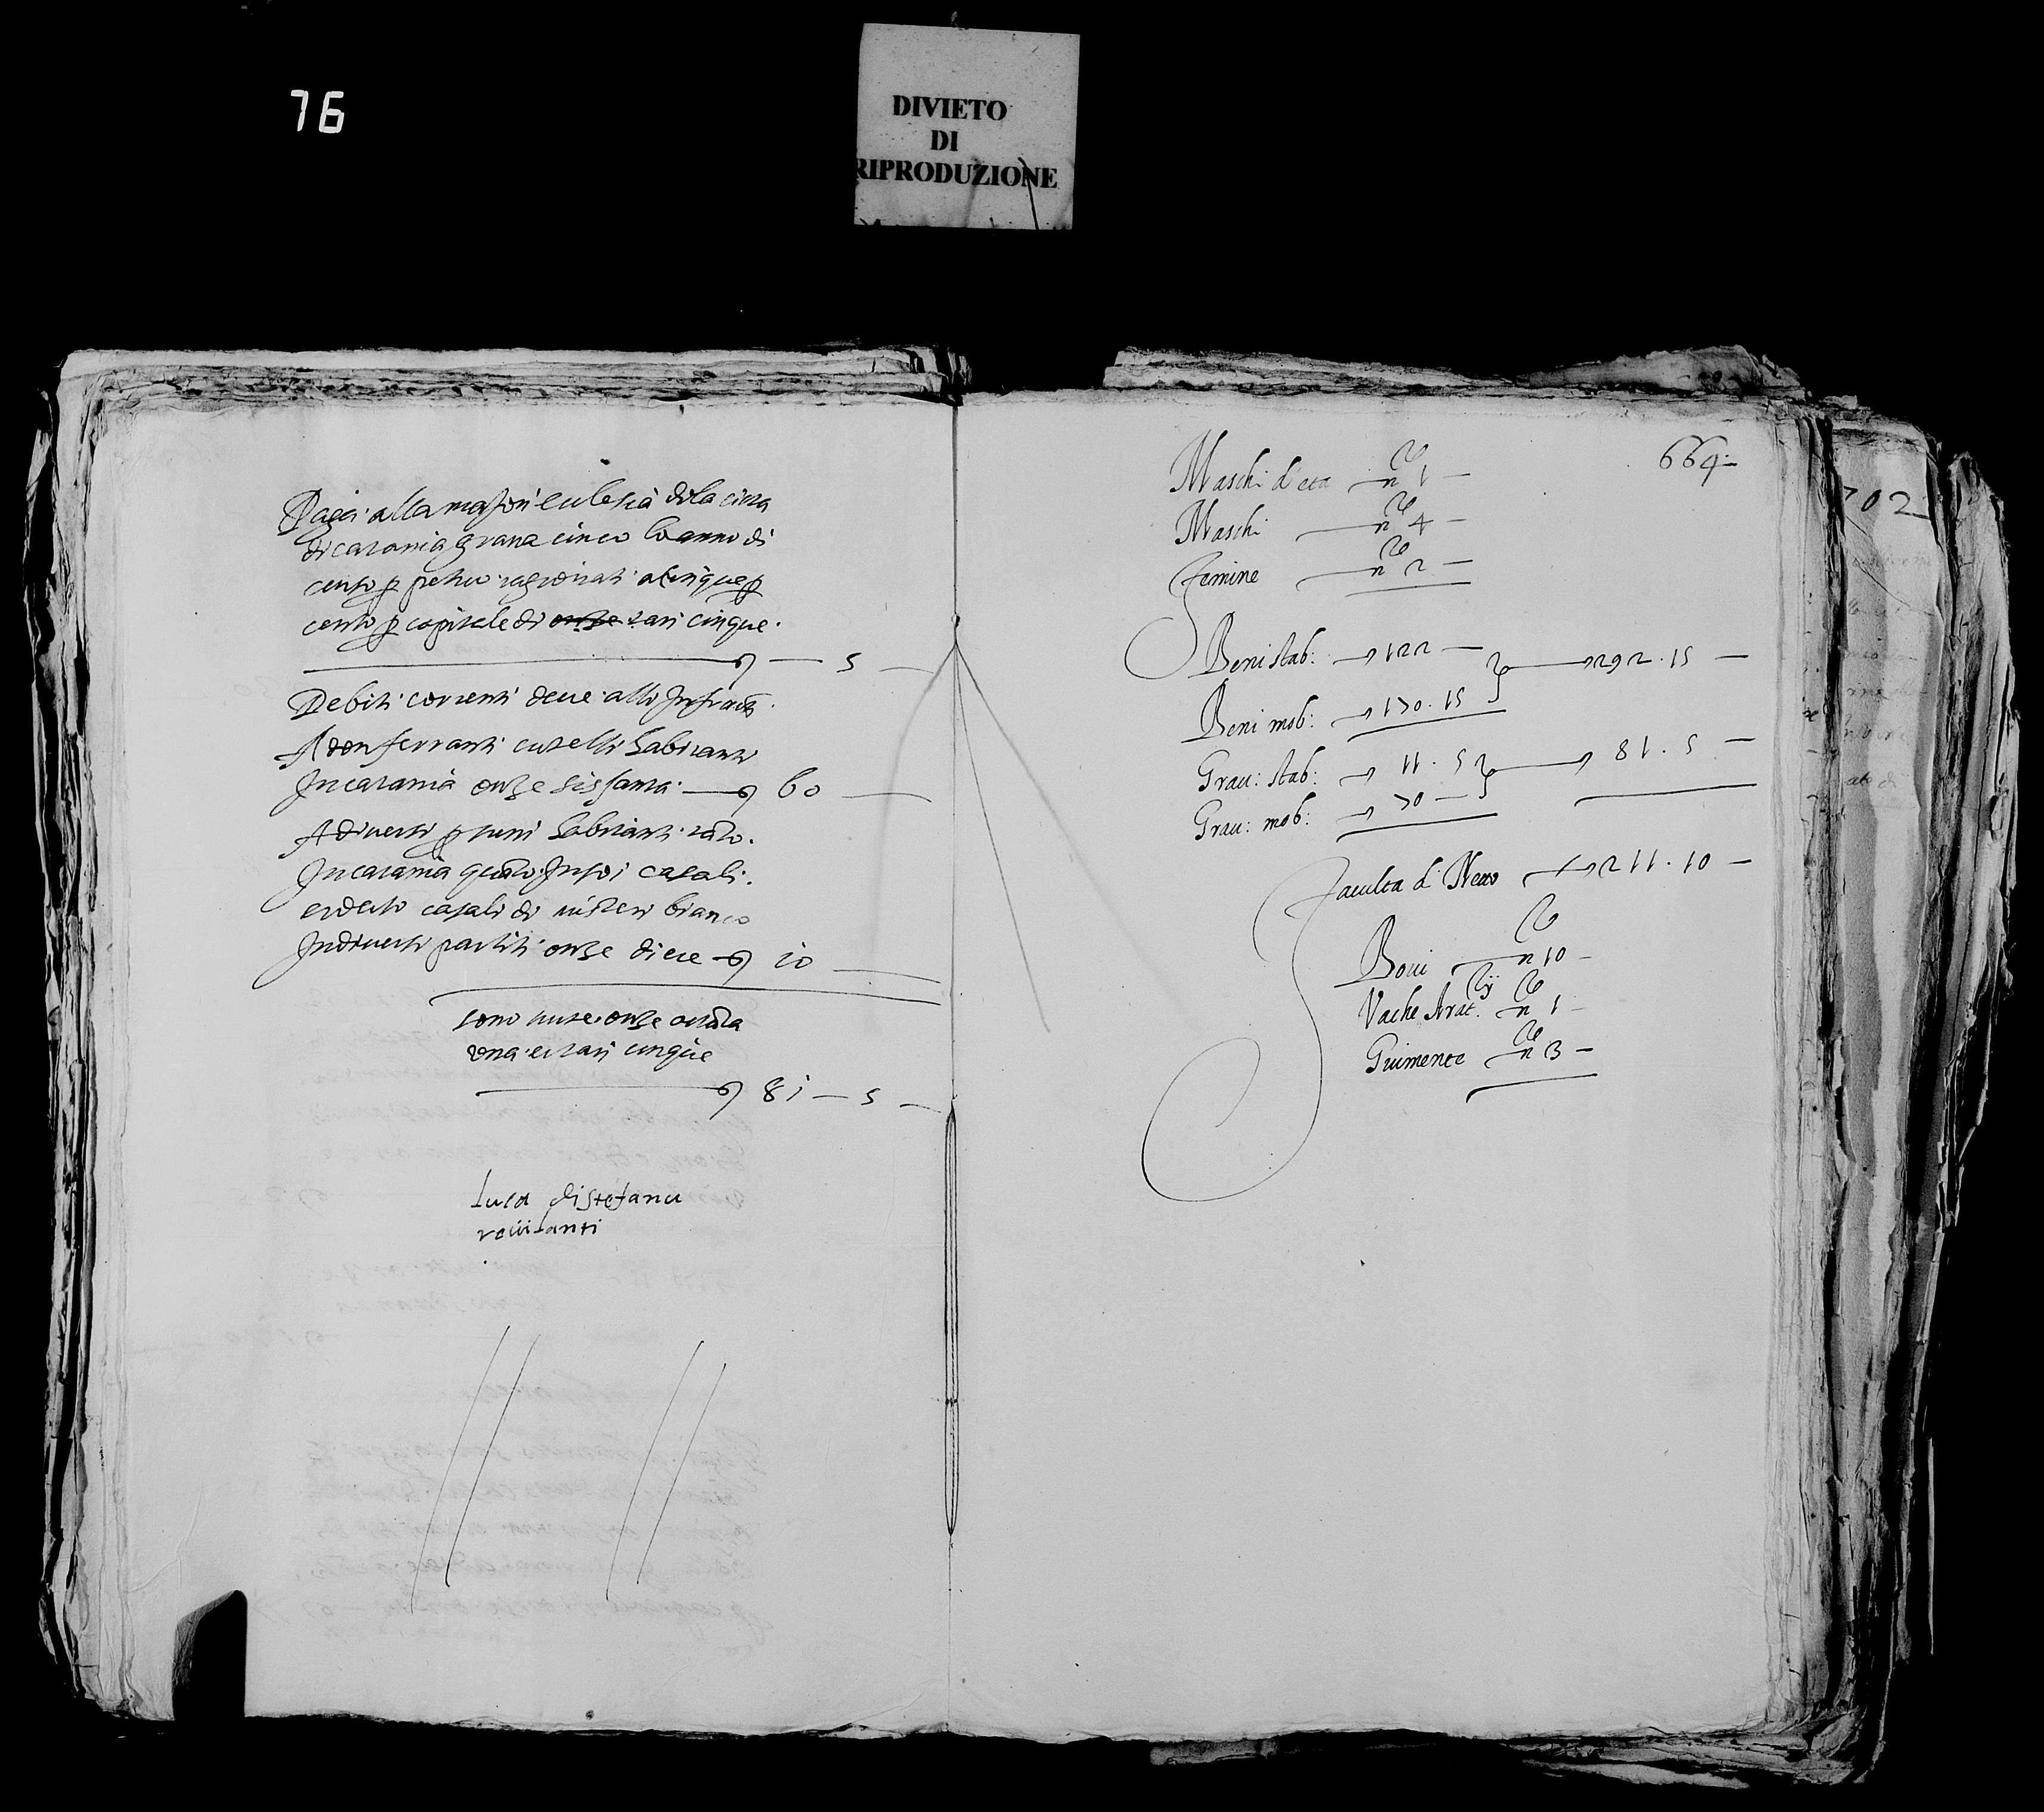 76
DIVIETO
DI
RIPRODUZIONE
Paga alla magiori ecclesia dila cita
di catania grana cinco lo anno di
censo p petuo ragionati a cinque p
cento p capitale di onze tari cinque
5
Debiti correnti deve alli Infrati
A don ferranti cutelli habitanti
In catania onze sissanta 60
A diversi p suni habitanti tanto
In catania quato Insoi casali
et detto casali di misteri bianco
In diversi partiti onze diece 10
sono tutte onze ottata
una et tari cinque
81 — 5
luca distefanu
rivilanti
664
Maschi d eta n 1
Maschi n 4
Femine n 2
Beni stab: 122
292.15
Beni mob: 170.15
Grau: stab: 11.5
81.5
Grau: mob: 70
Faculta di Netto 211.10
Boui n 10
Vache Arat. n 1
Giumente n 3
702